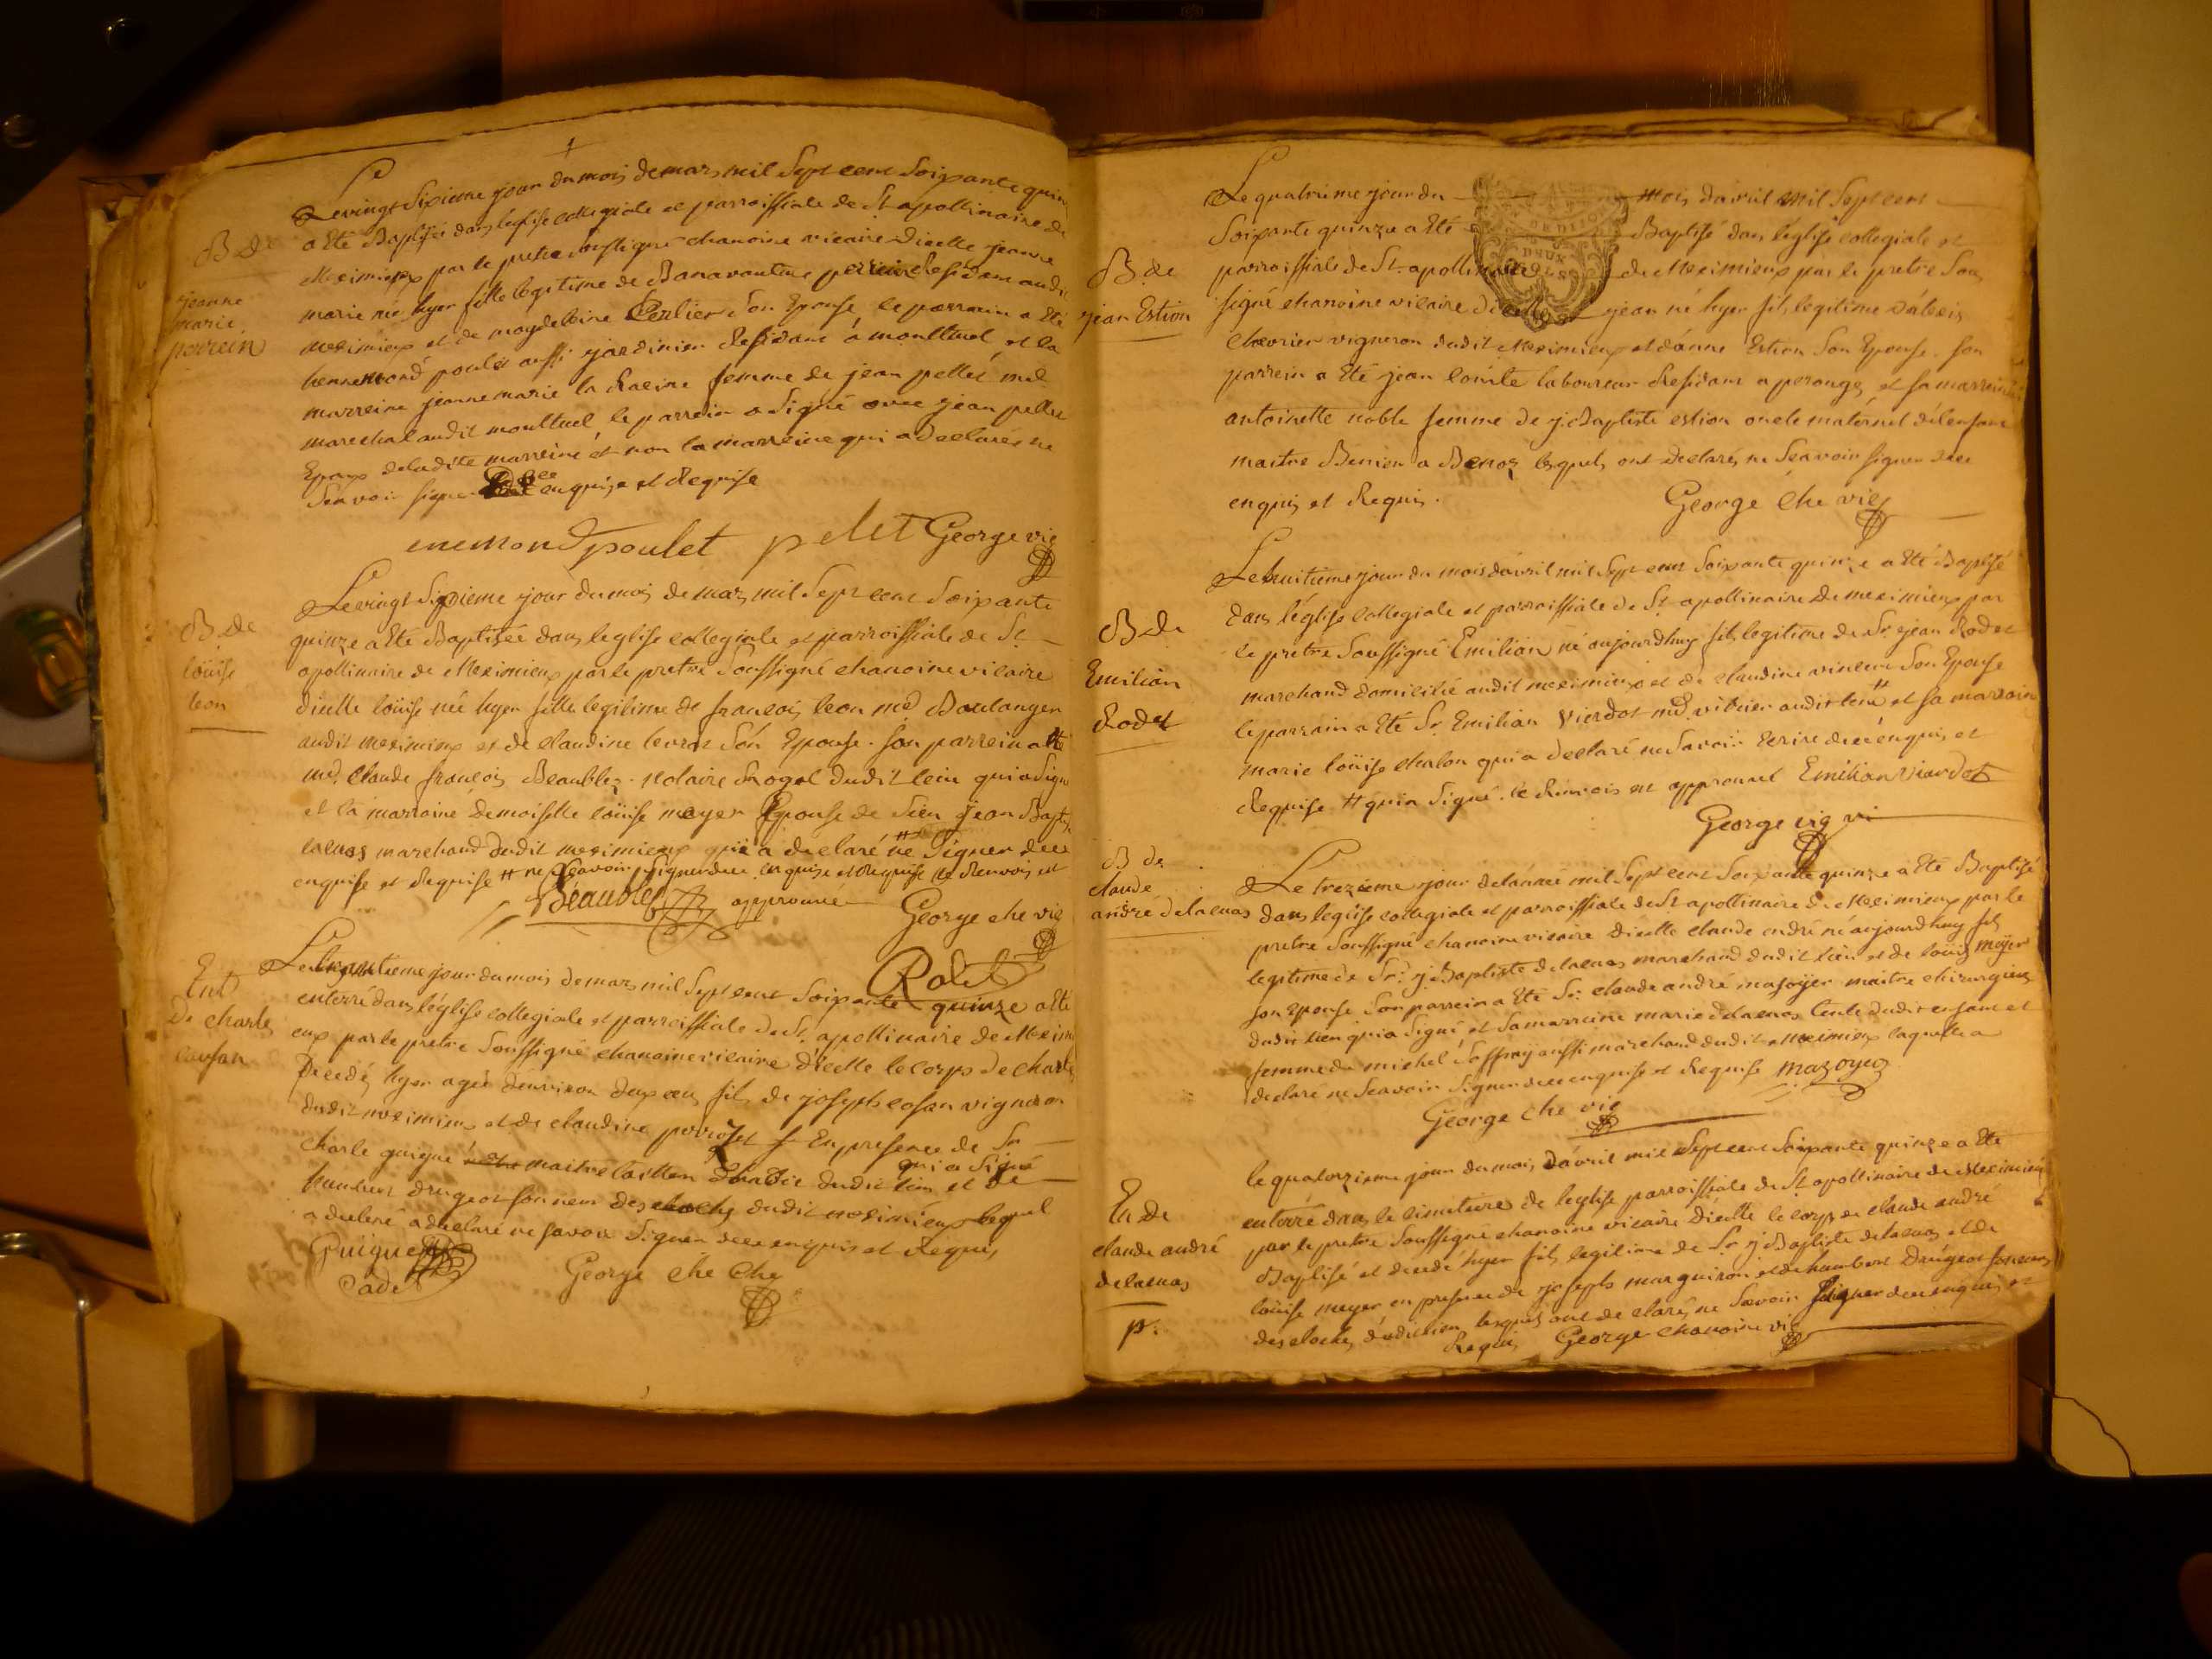 B de
jeanne
marie
perrein
Le vingt Sixieme jour du mois de mars mil Sept cent Soixante quin
a Eté Baptisée dans leglise collegiale et parroissiale de St apollinaire de
Meximieux par le pretre Soussigné chanoine vicaire Dicelle jeanne
marie née hyer fille legitime de Banavanture perrein Residant audit
meximieux et de magdeleine Cerlier Son Epouse, le parrain a Eté
hennemond poulet aussi jardinier Residant á montluel et la
marreine jeanne marie la Racine femme de jean pellet md
marechal audit montluel le parrein a Signé avec jean pellet
Epoux deladite marreine et non la marreine qui a declarée ne
Scavoir signer de ce enquise et Requise
enemond poulet pelet George vic
B de
loüise
leon
Le vingt Sixieme jour du mois de mars mil Sept cent Soixante
quinze a Eté Baptisée dans leglise collegiale et parroissiale de St
apollinaire de Meximieux par le pretre Soussigné chanoine vicaire
dicelle loüise née hyer fille legitime de francois leon md Boulanger
audit meximieux et de claudine levrat Son Epouse. Son parrein a Eté
me claude francois Beaublez notaire Royal dudit lieu qui a Signé
et la marraine demoiselle loüise meyer Epouse de Sieu jean Bapte
lacuas marchand dudit meximieux qui a déclaré ne Signer dece
enquise et Requise # ne Scavoir Signer dece enquise et Requise le Renvois est
Béaublez approuvé George che vic
Rolet
Ent
De charle
cousan
Le trantieme jour du mois de mars mil Sept cent Soixante quinze a Eté
enterré dans léglise collegiale et parroissiale de St apollinaire de Mexim
eux par le pretre Soussigné chanoine vicaire dicelle le corps de charle
Decedé hyer agée denviron deux ans fils de joseph cosan vigneron
dudit meximieux et de claudine En presence de Sr
charle guigue maitre tailleur dudit lieu qui a Signé et de
humbert drugeot sonneur des cloches dudit meximieux lequel
a declaré a declaré ne Savoir Signer dece enquis et Requis
Guigue
Cade George che Che
B de
jean Estion
Le quatrieme jour du mois d'avril mil Sept cent
Soixante quinze a Eté Baptisé dans léglise collegiale et
parroissiale de St apollinaire de Meximieux par le pretre Sous
signé chanoine vicaire Dicelle jean né hyer fils legitime d'alexis
chevrier vigneron dudit Meximieux et d'anne Estion Son Epouse. Son
parrein a Eté jean comte laboureur Residant a perouges et sa marreine
antoinette noble femme de j. Baptiste estion oncle maternel de lenfant
maitre Benier a lesquels ont declarés ne Scavoir signer dece
enquis et Requis.
George Che vic
B de
Emilian
Rodet
Le huitieme jour du mois d'avril mil Sept cent Soixante quinze a Eté Baptisé
dans léglise collegiale et parroissiale de St apollinaire de meximieux par
le prétre Soussigné Emilian né aujourdhuy fils legitime de Sr jean Rodet
marchand domicilié audit meximieux et de claudine vincent Son Epouse
le parrain a Eté Sr Emilian vierdot md vitrier audit lieu # et sa marraine
marie loüise chalon qui a declaré ne Savoir Ecrire dece enquis et
Requise # qui a Signé. le Renvois est approuvé Emilian viardot
George vic vi
B de
claude
andré delacuas
Le trezieme jour de lánneé mil Sept cent Soixante quinze a Eté Baptisé
dans léglise collegiale et parroissiale de St apollinaire de Meximieux par le
pretre Soussigné chanoine vicaire dicelle claude andré né aujourdhuy fils
legitime de Sr j. Baptiste delacuas marchand dudit lieu et de loüis meyer
son Epouse Son parrein a Eté Sr claude andré masoyer maitre chirurgien
dudit lieu qui a Signé et Sa marreine marie delacuas tante dudit enfant et
femme de michel Saffray aussi marchand dudit meximieux laquelle a
declaré ne Scavoir Signer dece enquise et Requise mazoyer
George che vic
En de
claude andré
delacuas
p.
le quatorzieme jour du mois d'avril mil Sept cent Soixante quinze a Eté
enterré dans le cimetiere de leglise parroissiale de St apollinaire de Meximieux
par le pretre Soussigné chanoine vicaire Dicelle le corps de claude andré
Baptisé et decedé hyer fils legitime de Sr j Baptiste delacuas et de
loüise meyer en presence de joseph marguiron et de humbert Drugeot sonneur
des cloches dudit lieu lesquels ont declarés ne Savoir Signer dece enquis et
Requis George chanoine vic